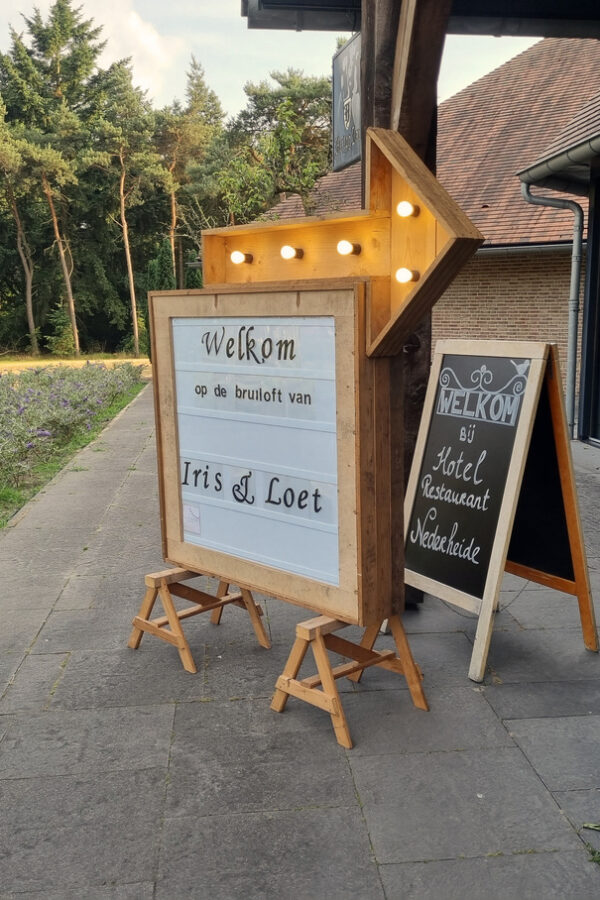 Welkom
op de bruiloft van
Iris & Loet
WELKOM
BIJ
Hotel
Restaurant
Nederheide